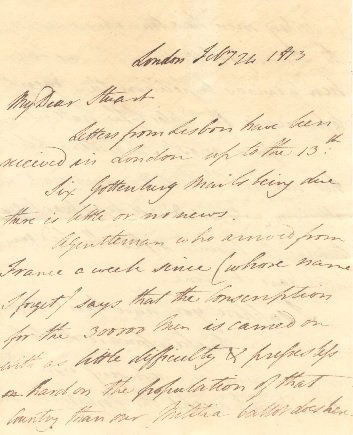 London Feby 24 1813
My Dear Stuart
Letters from Lisbon have been
received in London up to the 13th
Six Gottenburg Mails being due
there is little or no news.
A Gentleman who arrived from
France a week since (whose name
I forget) says that the Conscription
for the 300000 Men is carried on
with as little difficulty & presses less
on the population of that
Country than our Militia does here